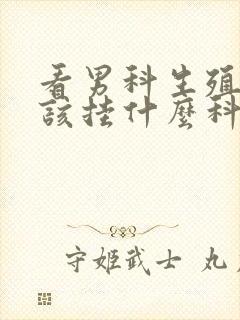 看男科生殖
該挂什麼科
守姬武士 丸